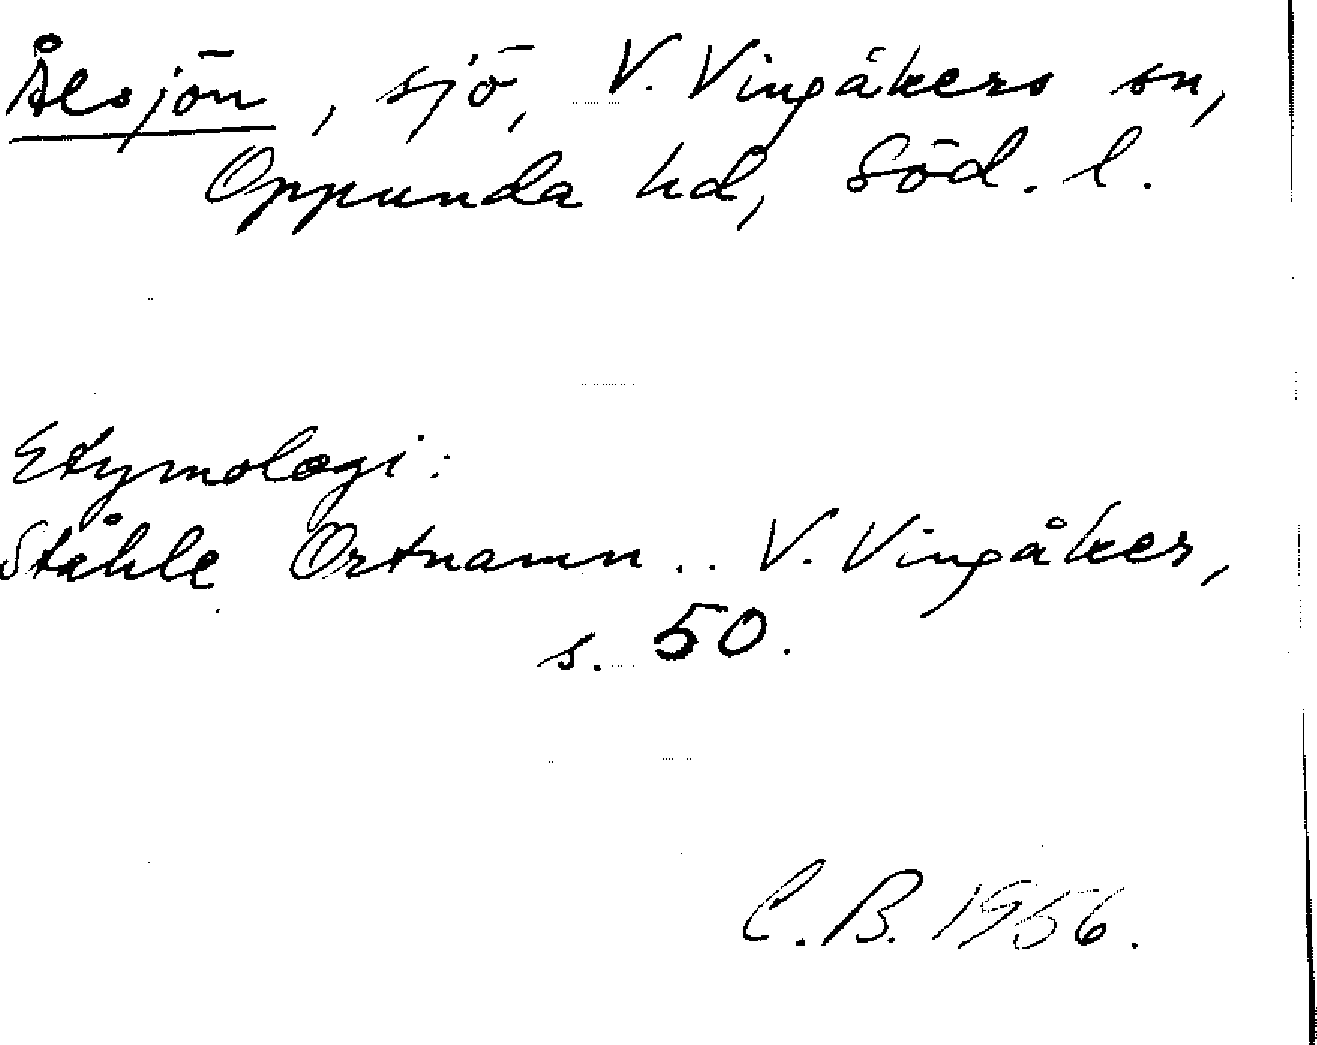 Ålsjön, sjö, V. Vingåkers sn,
Oppunda hd, Söd. l.
Etymologi:
Ståhle Ortnamn .. V. Vingåker,
s. 50.
C. B. 1956.